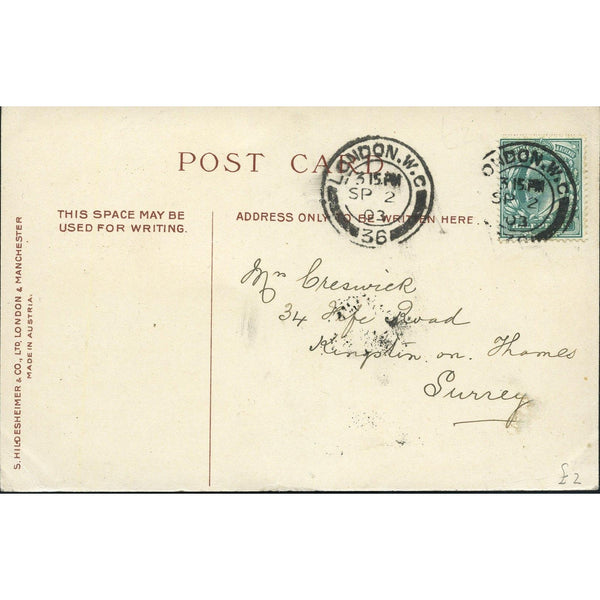 POST CARD
LONDON.W.C
3 15.PM
SP 2
03
36
LONDON.W.C
3 15.PM
SP 2
03
THIS SPACE MAY BE
USED FOR WRITING.
ADDRESS ONLY TO BE WRITTEN HERE.
Mrs Creswick
34 Fife Road
Kingston on Thames
Surrey
S. HILDESHEIMER & CO., LTD, LONDON & MANCHESTER
MADE IN AUSTRIA.
£2